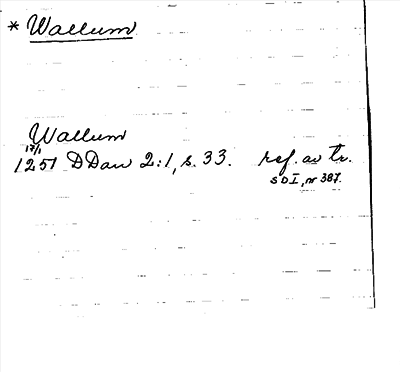 * Wallum
Wallum
17/1
1251 DDan 2:1, s. 33. ref. av tr.
SD I, nr 387.